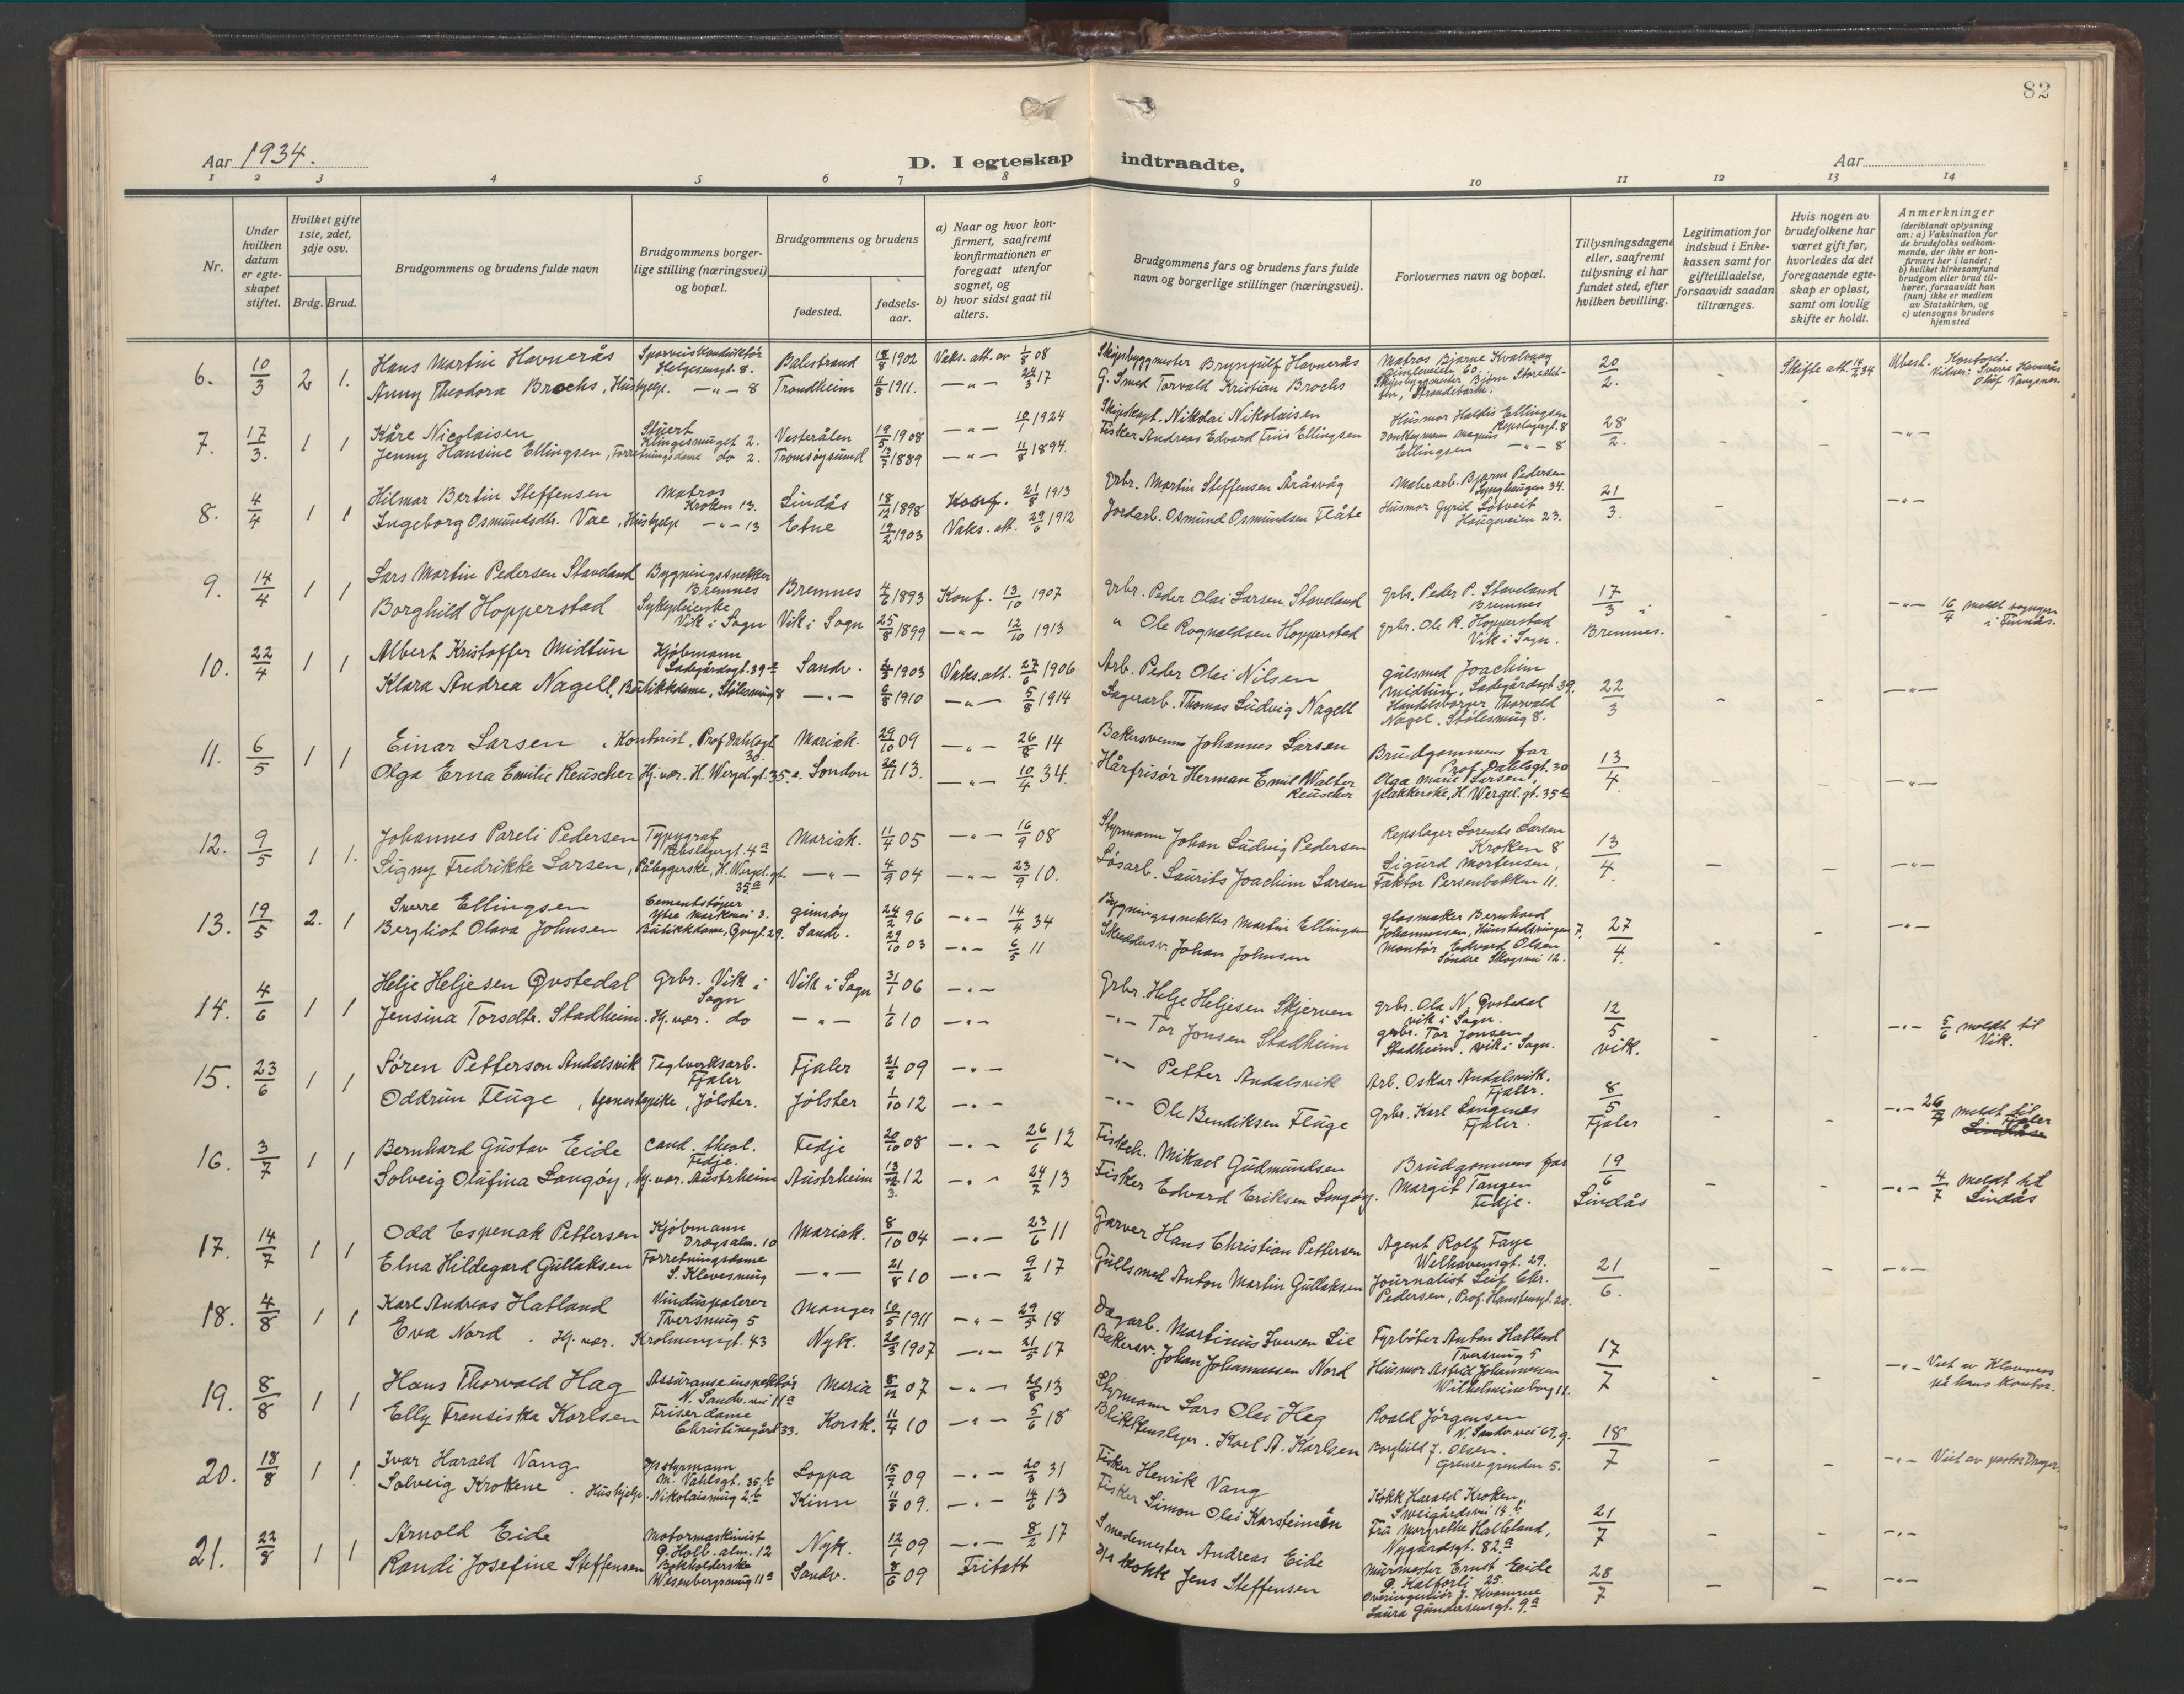 82
Aar 1934.
D. I egteskap indtraadte.
Aar
1 2 3 4 5 6 7 8 9 10 11 12 13 14
Nr.
Under hvilken datum er egteskapet stiftet.
Hvilket gifte 1ste, 2det, 3dje osv.
Brdg. Brud.
Brudgommens og brudens fulde navn
Brudgommens borgerlige stilling (næringsvei) og bopæl.
Brudgommens og brudens
fødested.
fødselsaar.
a) Naar og hvor konfirmert, saafremt konfirmationen er foregaat utenfor sognet, og
b) hvor sidst gaat til alters.
Brudgommens fars og brudens fars fulde navn og borgerlige stillinger (næringsvei).
Forlovernes navn og bopæl.
Tillysningsdagene eller, saafremt tillysning ei har fundet sted, efter hvilken bevilling.
Legitimation for indskud i Enkekassen samt for giftetilladelse, forsaavidt saadan tiltrænges.
Hvis nogen av brudefolkene har været gift før, hvorledes da det foregaaende egteskap er opløst, samt om lovlig skifte er holdt.
Anmerkninger (deriblandt oplysning om: a) Vaksination for de brudefolks vedkommende, der ikke er konfirmert her i landet; b) hvilket kirkesamfund brudgom eller brud tilhører, forsaavidt han (hun) ikke er medlem av Statskirken, og c) utensogns bruders hjemsted
6. 10/3 2 1. Hans Martin Havnerås Sporveiskonduktør Helgesensgt. 8. Balestrand 18/8 1902 Vaks. att. av 1/8 08 Skipsbyggmester Brynjulf Havnerås Matros Bjarne Kvalvaag 60. 20/2. - Skifte att. 14/2 34 Ubest. Kontoret. Vidner: Sverre Havnerås
Anny Theodora Brochs, Hushjelp. -"- 8 Trondheim 11/8 1911. -"- 24/3 17 G. Smed Torvald Kristian Brochs Skipsbyggmester Bjørn Strandebarm.
7. 17/3. 1 1 Kåre Nicolaisen Stuert Klingesmuget 2. Vesterålen 19/5 1908 -"- 10/1 1924 Skipskapt. Nikolai Nikolaisen Husmor Haldis Ellingsen Repslagergt. 8 28/2. - - -"-
Jenny Hansine Ellingsen, Forretningsdame do 2. Tromsøysund 13/7 1889 -"- 11/8 1894. Fisker Andreas Edvard Friis Ellingsen Donkeymann Magnus Ellingsen -"- 8
8. 4/4 1 1 Hilmar Bertin Steffensen Matros Kroken 13. Lindås 18/12 1898 Konf. 21/8 1913 Grbr. Martin Steffensen Åråsvåg Malerarb. Bjarne Pedersen Lynghaugen 34. 21/3. - -"-
Ingeborg Osmundsdtr. Vae, Hushjelp -"- 13 Etne 19/2 1903 Vaks. att. 29/6 1912 Jordarb. Osmund Osmundsen Flåte Husmor Gyrid Løtveit Haugeveien 23.
9. 14/4 1 1 Lars Martin Pedersen Staveland Bygningssnekker Bremnes Bremnes 4/6 1893 Konf. 13/10 1907 Grbr. Peder Olai Larsen Staveland Grbr. Peder P. Staveland Bremnes 17/3 i Bremnes. - - -"- 16/4 meldt sognepr. i Finnås.
Borghild Hopperstad Sykepleierske Vik i Sogn Vik i Sogn 25/8 1899 -"- 12/10 1913 " Ole Rognaldsen Hopperstad Grbr. Ole R. Hopperstad Vik i Sogn.
10. 22/4 1 1 Albert Kristoffer Midtun Kjøbmann Ladegårdsgt. 39a Sandv. 1903 Vaks. att. 27/6 1906 Arb. Peder Olai Nilsen Gulsmed Joachim Midtun, Ladegårdsgt 39. 22/3 - - -"-
Klara Andrea Nagell, Butikkdame, Stølesmug 8 -"- 6/8 1910 -"- 5/8 1914 Lagerarb. Thomas Ludvig Nagell Handelsborger Thorvald Nagel. Stølesmug 8.
11. 6/5 1 1 Einar Larsen, Kontorist, Prof Dahlsgt 30. Mariak. 29/10 09 -"- 26/8 14 Bakersvenn Johannes Larsen Brudgommens far Prof. Dahlsgt. 30 13/4. - - -"-
Olga Erna Emilie Reuscher Hj. vær. H. Wergel. gt. 35. a. London 20/11 13. -"- 10/4 34. Hårfrisør Herman Emil Walter Reuscher Olga Marie Larsen, pakkerske, H. Wergel. gt. 35a
12. 9/5 1 1. Johannes Pareli Pedersen Typograf Repslagergt. 4a Mariak. 11/4 05 -"- 16/9 08 Styrmann Johan Ludvig Pedersen Repslager Lorents Larsen Kroken 8 13/4. - - -"-
Signy Fredrikke Larsen, Påleggerske, H. Wergel. gt. 35.a -"- 4/9 04 -"- 23/9 10. Løsarb. Laurits Joachim Larsen Sigurd Mortensen, Faktor Persenbakken 11.
13. 19/5 2. 1 Sverre Ellingsen Cementstøper Ytre Markevei 3. Gimsøy 24/2 96 -"- 14/4 34 Bygningssnekker Martin Ellingsen Glasmaker Bernhard Johannessen, 7. 27/4. - - -"-
Bergliot Olava Johnsen Butikkdame, 29. Sandv. 29/10 03 -"- 6/5 11 Skreddersv. Johan Johnsen Montør Edvard Olsen Søndre Skogvei 12.
14. 4/6 1 1 Helje Heljesen Qvstedal Grbr. Vik i Sogn Vik i Sogn 31/1 06 -"- Grbr. Helje Heljesen Skjerven Grbr. Ola N. Qvstedal Vik i Sogn. 12/5 Vik. - - -"- 5/6 meldt til Vik.
Jensina Torsdtr. Stadheim. Hj. vær. do -"- 1/6 10 -"- -"- Tor Jonsen Stadheim Grbr. Tor Jonsen Stadheim, Vik i Sogn.
15. 23/6 1 1 Søren Petterson Andalsvik Teglverksarb. Fjaler Fjaler 21/2 09 -"- -"- Petter Andalsvik Arb. Oskar Andalsvik. Fjaler. 8/5 Fjaler - - -"- 26/7 meldt til Fjaler
Oddrun Fluge, tjenestepike, Jølster. Jølster 1/10 12 -"- -"- Ole Bendiksen Fluge Grbr. Karl Langenes Fjaler.
16. 3/7 1 1 Bernhard Gustav Eide cand. theol. Fedje. Fedje 20/10 08 -"- 26/6 12 Fiskeh. Mikael Gudmundsen Brudgommens far 19/6 Lindås - - -"- 4/7 meldt til Lindås
Solveig Olufina Langøy, hj. vær. Austrheim Austrheim 13/12 12 3. -"- 24/7 13 Fisker Edvard Eriksen Langøy. Margit Tangen Fedje.
17. 14/7 1 1 Odd Espenak Pettersen Kjøbmann Dragsalm. 10 Mariak. 8/10 04 -"- 23/6 11 Garver Hans Christian Pettersen Agent Rolf Faye Welhavensgt. 29. 21/6. - - -"-
Elna Hildegard Gullaksen Forretningsdame S. Klevesmug -"- 21/8 10 -"- 9/2 17 Gullsmed Anton Martin Gullaksen Journalist Leif Chr. Pedersen, Prof. Hansteensgt. 20.
18. 4/8 1 1 Karl Andreas Hatland Vinduspolerer Tversmug 5 Manger 10/5 1911 -"- 29/5 18 Dagarb. Martinius Iversen Lie Fyrbøter Anton Hatland Tversmug 5 17/7 - -
Eva Nord. Hj. vær. Krohnengsgt. 43 Nyk. 20/3 1907 -"- 21/5 17 Bakersv. Johan Johannessen Nord Husmor Astrid Johannessen Wilhelmineborg 11.
19. 8/8 1 1 Hans Thorvald Hag Assuranseinspektør N. Sandv. vei 11a Maria 8/12 07 -"- 20/8 13 Styrmann Lars Olai Hag Roald Jørgensen N. Sandv. vei 69.g. 18/7 - - -"- Viet av Klaveness på hans kontor.
Elly Fransiska Karlsen Friserdame Christinegård 33. Korsk. 11/4 10 -"- 5/6 18 Blikkenslager. Karl A. Karlsen Borghild J. Olsen. Grensegrenden 5.
20. 18/8 1 1 Ivar Harald Vang Styrmann M. Vahlsgt. 35.b Loppa 15/7 09 -"- 20/3 31 Fisker Henrik Vang Kokk Harald Kroken, Sweigårdsvei 14.b 21/7 - - -"- Viet av pastor
Solveig Krokene. Hushjelp. Nikolaismug 2.b Kinn 11/8 09. -"- 14/6 13 Fisker Simon Olai Karsteinsen Fru Margrethe Halleland, Nygårdsgt. 82.a
21. 22/8 1 1 Arnold Eide Motormaskinist G. Holb. alm. 12 Nyk. 12/1 09 -"- 8/2 17 Smedemester Andreas Eide Murmester Ernst Eide Ø. Kalfarli 25. 28/7 - - -"-
Randi Josefine Steffensen Bokholderske Wesenbergsmug 11a Sandv. 8/6 09 Fritatt D/s kokk Jens Steffensen Overingeniør J. Kvamme Laura Gundersensgt. 9.a